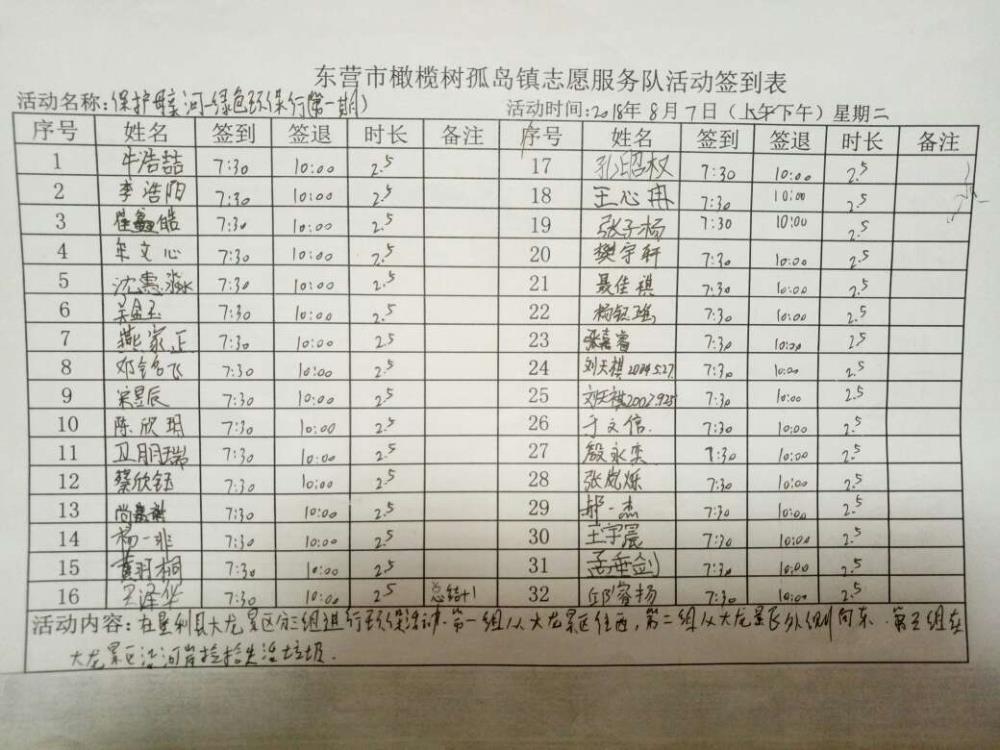 东营市橄榄树孤岛镇志愿服务队活动签到表
活动名称:保护母亲河-绿色环保行(第一期) 活动时间:2018年8月7日(上午下午)星期二
序号 姓名 签到 签退 时长 备注 序号 姓名 签到 签退 时长 备注
1 牛浩喆 7:30 10:00 2.5 17 孔昭权 7:30 10:00 2.5
2 李浩阳 7:30 10:00 2.5 18 王心冉 7:30 10:00 2.5
3 崔鑫皓 7:30 10:00 2.5 19 张子杨 7:30 10:00 2.5
4 牟文心 7:30 10:00 2.5 20 樊宇轩 7:30 10:00 2.5
5 沈惠淼 7:30 10:00 2.5 21 聂佳祺 7:30 10:00 2.5
6 7:30 10:00 2.5 22 杨钰 7:30 10:00 2.5
7 燕家正 7:30 10:00 2.5 23 张嘉睿 7:30 10:00 2.5
8 邓铭飞 7:30 10:00 2.5 24 刘天祺2004.5.27 7:30 10:00 2.5
9 宋昱辰 7:30 10:00 2.5 25 刘天祺2007.9.25 7:30 10:00 2.5
10 陈欣玥 7:30 10:00 2.5 26 于文信 7:30 10:00 2.5
11 卫朋瑞 7:30 10:00 2.5 27 殷永奕 7:30 10:00 2.5
12 蔡欣钰 7:30 10:00 2.5 28 张岚烁 7:30 10:00 2.5
13 尚 7:30 10:00 2.5 29 郝一杰 7:30 10:00 2.5
14 杨一非 7:30 10:00 2.5 30 王宇晨 7:30 10:00 2.5
15 黄羽桐 7:30 10:00 2.5 31 孟垂剑 7:30 10:00 2.5
16 吴泽华 7:30 10:00 2.5 总结+1 32 邱睿扬 7:30 10:00 2.5
活动内容:在垦利县大龙景区分三组进行环保活动.第一组从大龙景区往西,第二组从大龙景区外侧向东.第三组在
大龙景区沿河岸捡拾 垃圾.